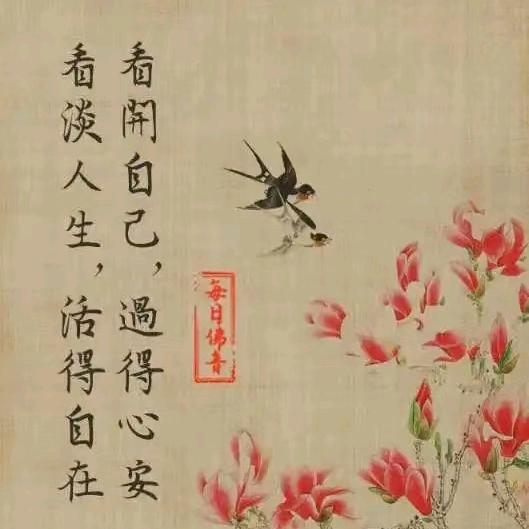 看開自己，過得心安
看淡人生，活得自在
每日佛音